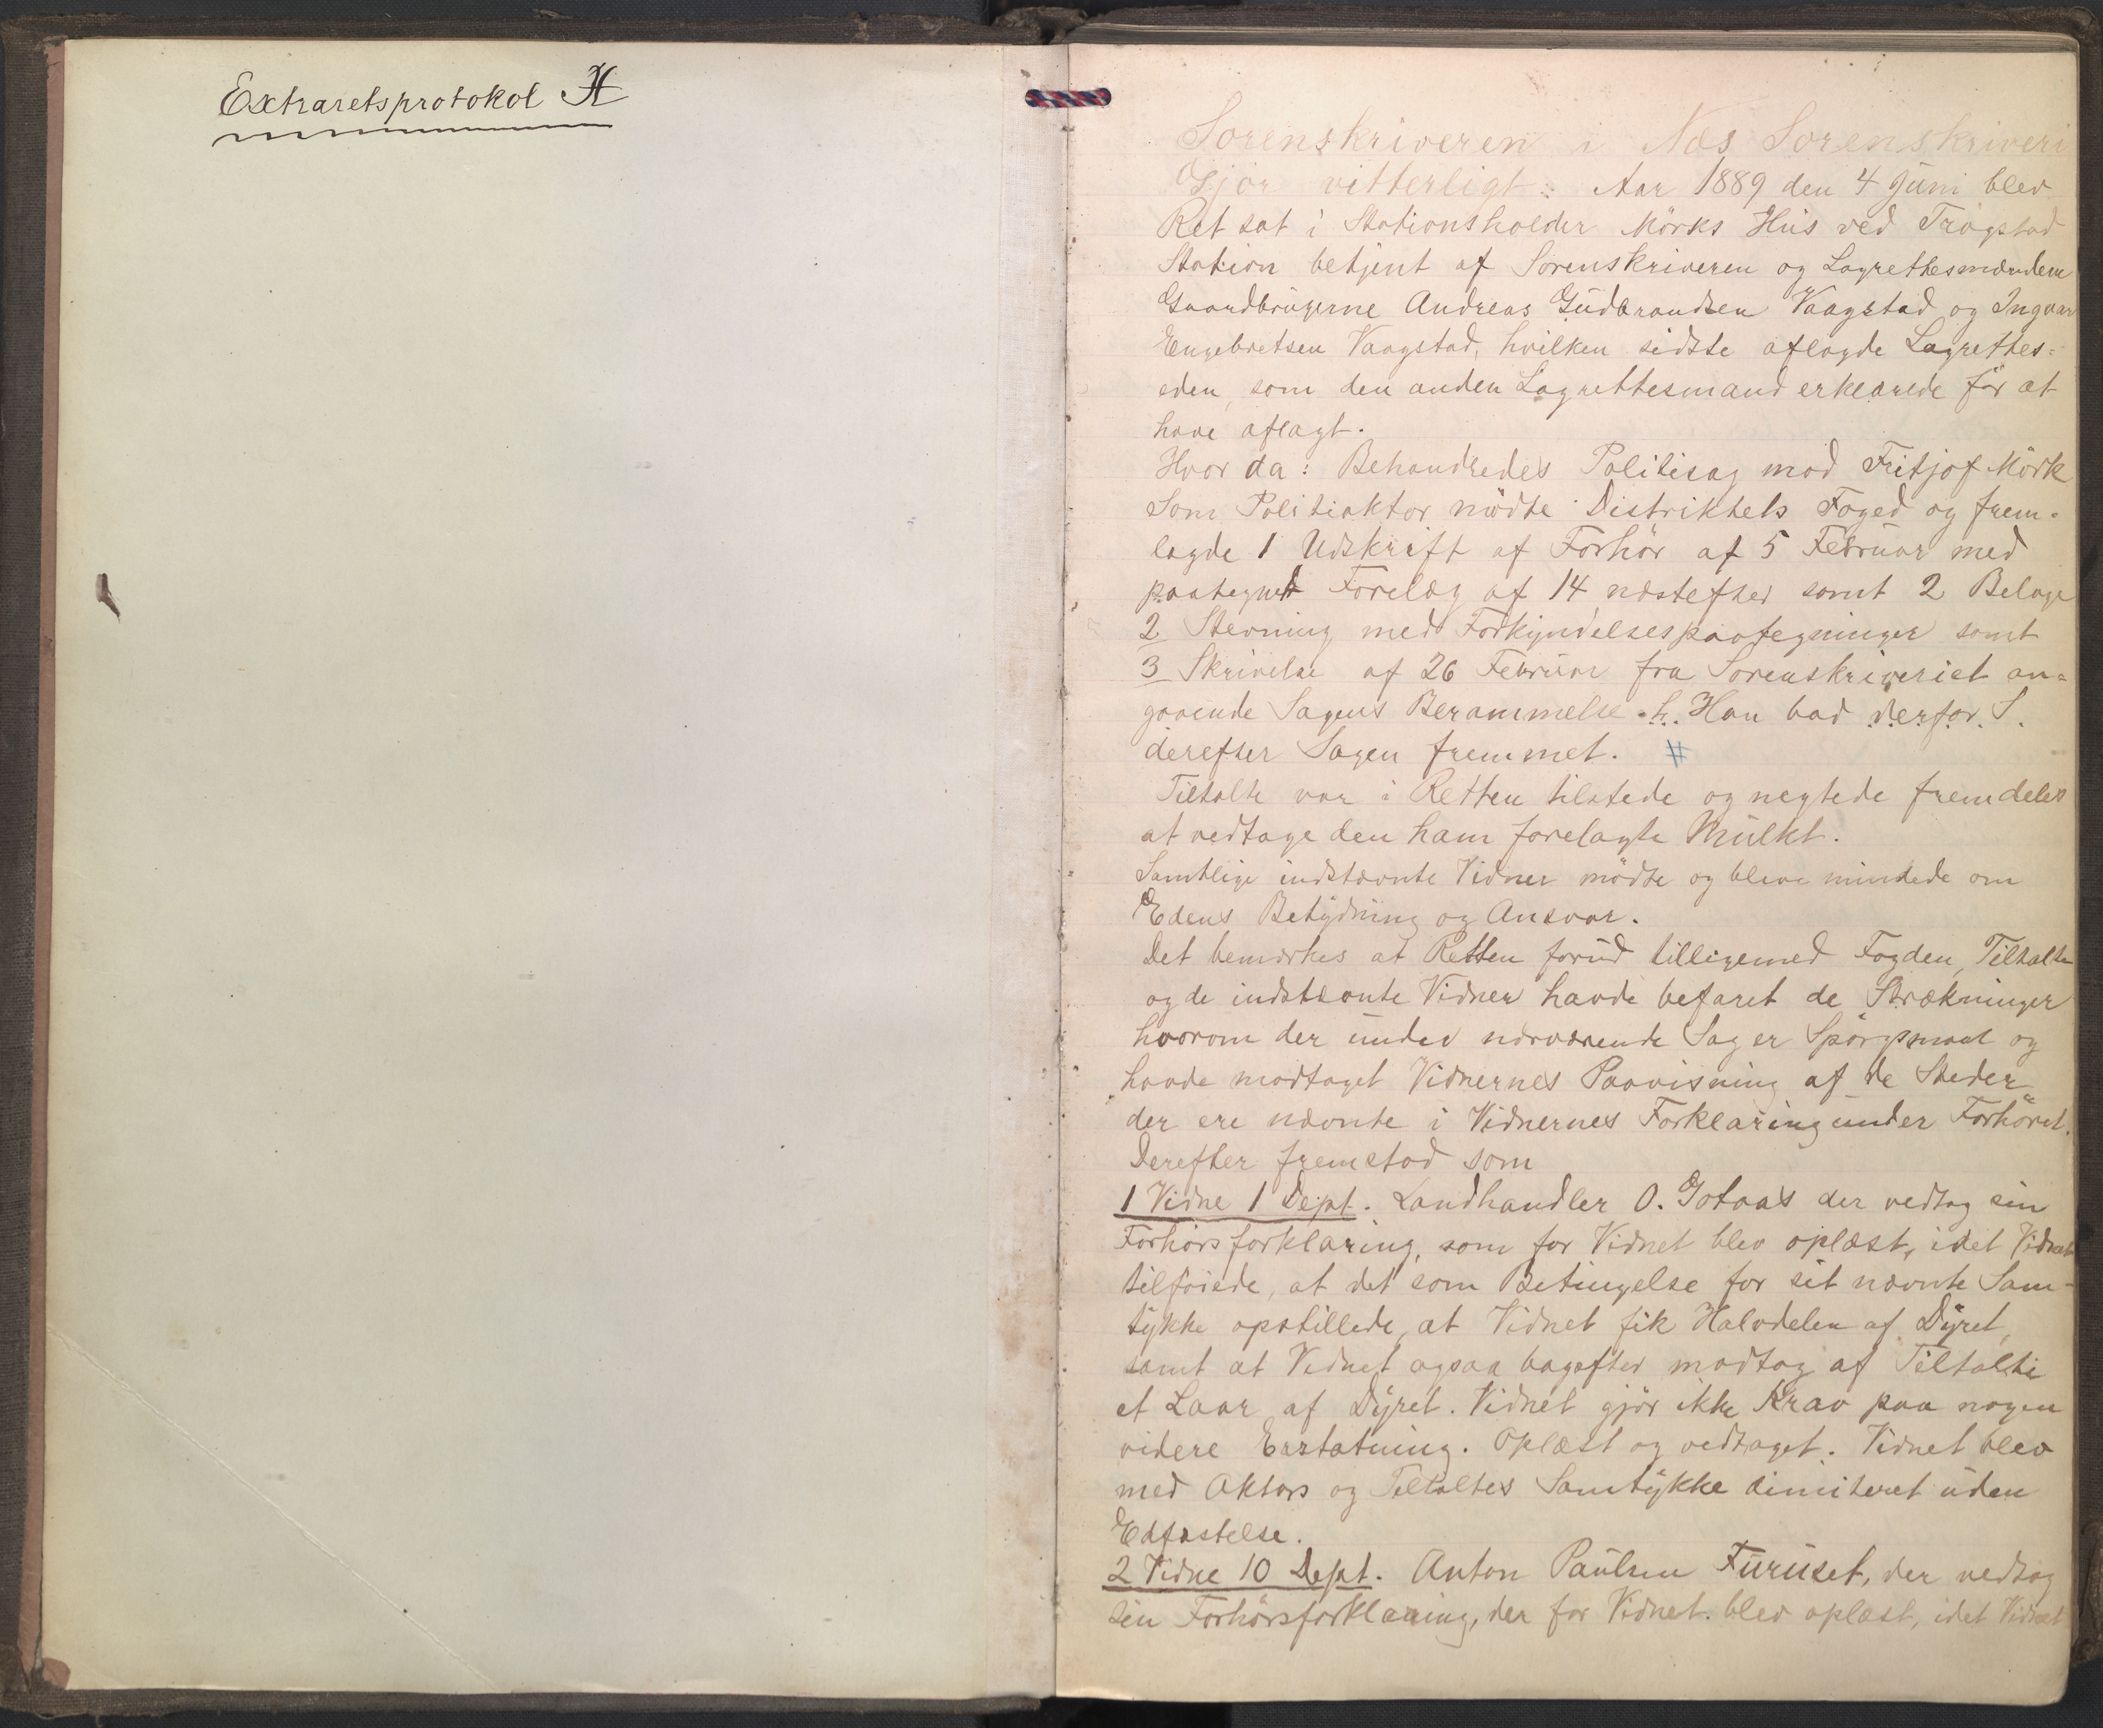 Extraretsprotokol H
Sorenskriveren i Næs Sorenskriveri
Gjør vitterligt: Aar 1889 den 4 Juni blev
Ret sat i Stationsholder Mörks Hus ved Trögstad
Station betjent af Sorenskriveren og Lagrettesmændene
Gaardbrugerne Andreas Gudbrandsen Vaagstad og Ingvar
Engebretsen Vaagstad, hvilken sidste aflagde Lagrettes=
eden, som den anden Lagrettesmand erklærede för at
have aflagt.
Hvor da: Behandledes Politisag mod Fritjof Mörk
Som Politiaktor mödte Distriktets Foged og frem-
lagde 1 Udskrift af Forhör af 5 Februar med
paategnet Forelæg af 14 næstefter samt 2 Belage
2 Stevning med Forkyndelsespaategninger samt
3 Skrivelse af 26 Februar fra Sorenskriveriet an=
gaaende Sagens Berammelse. h. Han bad derfor S.
derefter Sagen fremmet. #
Tiltalte var i Retten tilstede og negtede fremdeles
at vedtage den ham forelagte Mulkt.
Samtlige indstævnte Vidner mödte og bleve mindede om
Edens Betydning og Ansvar.
Det bemærkes at Retten forud tilligemed Fogden, Tiltalte
og de indstævnte Vidner havde befaret de Strækninger
hvorom der under nærværende Sag er Spörgsmaal og
havde modtaget Vidnernes Paavisning af de Steder
der ere nævnte i Vidnernes Forklaring under Forhöret.
Derefter fremstod som
1 Vidne 1 Dept. Landhandler O. Gotaas der vedtog sin
Forhörsforklaring, som for Vidnet blev oplæst, idet Vidnet
tilföiede, at det som Betingelse for sit nævnte Sam-
tykke opstillede, at Vidnet fik Halvdelen af Dyret,
samt at Vidnet ogsaa bagefter modtog af Tiltalte
et Laar af Dyret. Vidnet gjör ikke Krav paa nogen
videre Erstatning. Oplæst og vedtaget. Vidnet blev
med Aktors og Tiltaltes Samtykke dimiteret uden
Edfæstelse.
2 Vidne 10 Dept. Anton Paulsen Furuset, der vedtog
sin Forhörsforklaring, der for Vidnet blev oplæst, idet Vidnet